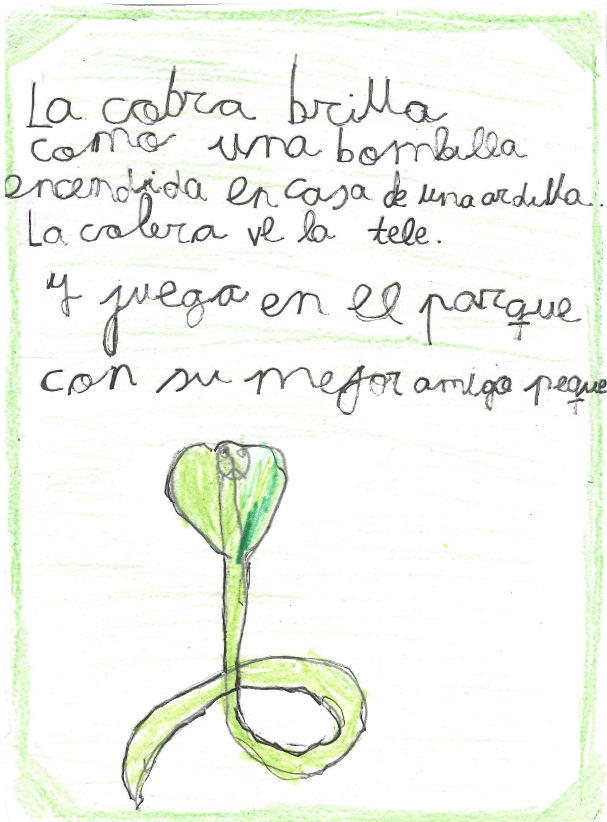 La cobra brilla
como una bombilla
encendida en casa de una ardilla.
La colera ve la tele.
y juega en el parque
con su mejor amigo peque